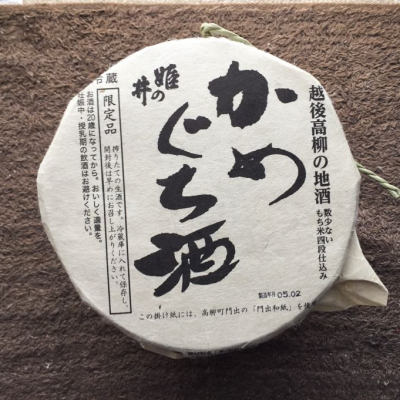 越後高柳の地酒
数少ない
もち米四段仕込み
かめ
ぐち酒
姫の
井
限定品
搾りたての生酒です。冷蔵庫に入れて保存し、
開封後は早めにお召し上がりください。
冷蔵
お酒は20歳になってから。おいしく適量を。
妊娠中・授乳期の飲酒はお避けください。
製造年月 05.02
この掛け紙には、高柳町門出の「門出和紙」を使